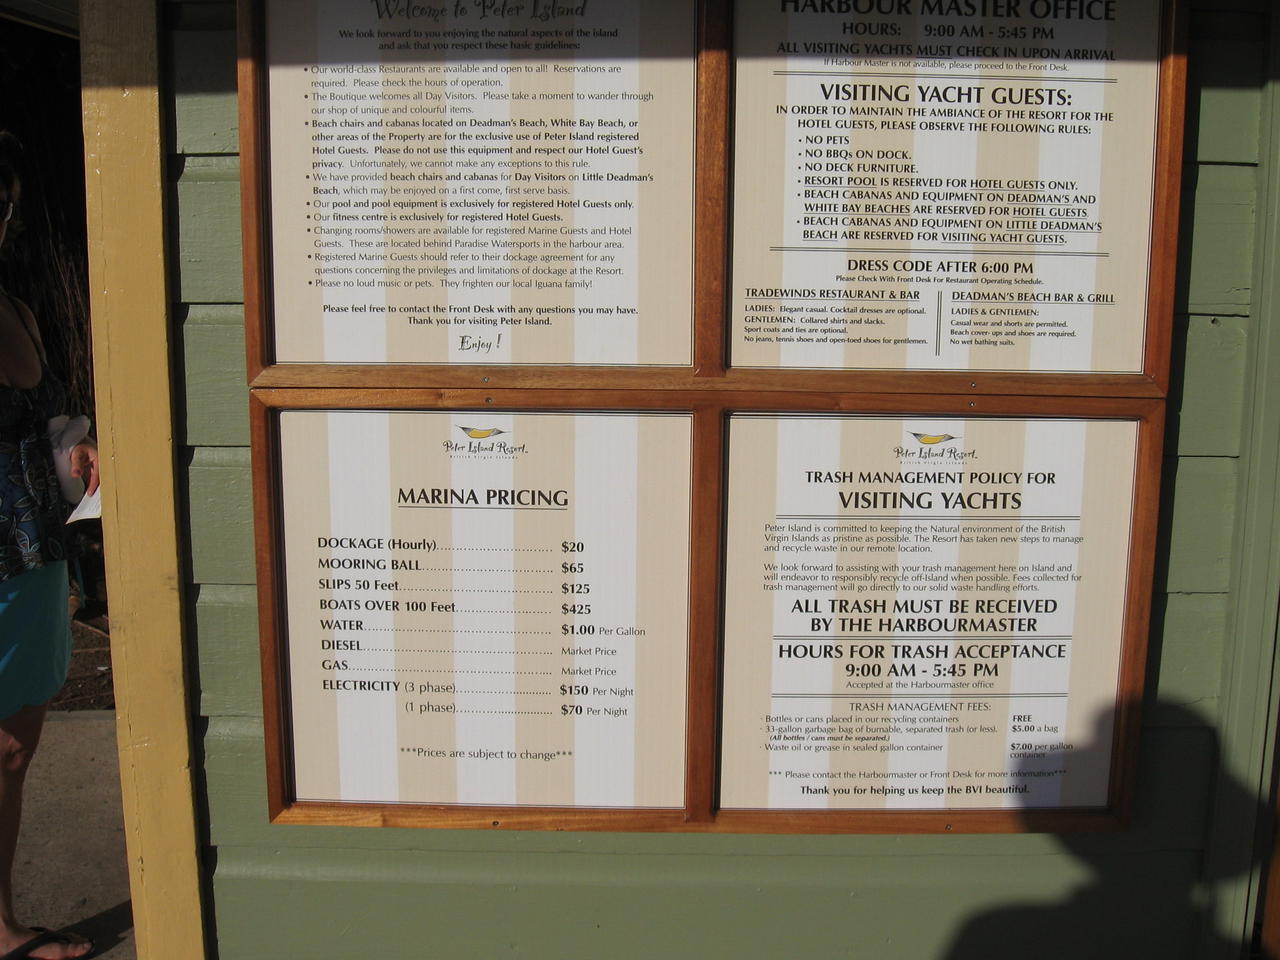 Welcome to Peter Island
We look forward to you enjoying the natural aspects of the island
and ask that you respect these basic guidelines:
• Our world-class Restaurants are available and open to all! Reservations are
required. Please check the hours of operation.
• The Boutique welcomes all Day Visitors. Please take a moment to wander through
our shop of unique and colourful items.
• Beach chairs and cabanas located on Deadman's Beach, White Bay Beach, or
other areas of the Property are for the exclusive use of Peter Island registered
Hotel Guests. Please do not use this equipment and respect our Hotel Guest's
privacy. Unfortunately, we cannot make any exceptions to this rule.
• We have provided beach chairs and cabanas for Day Visitors on Little Deadman's
Beach, which may be enjoyed on a first come, first serve basis.
• Our pool and pool equipment is exclusively for registered Hotel Guests only.
• Our fitness centre is exclusively for registered Hotel Guests.
• Changing rooms/showers are available for registered Marine Guests and Hotel
Guests. These are located behind Paradise Watersports in the harbour area.
• Registered Marine Guests should refer to their dockage agreement for any
questions concerning the privileges and limitations of dockage at the Resort.
• Please no loud music or pets. They frighten our local Iguana family!
Please feel free to contact the Front Desk with any questions you may have.
Thank you for visiting Peter Island.
Enjoy!
HARBOUR MASTER OFFICE
HOURS: 9:00 AM - 5:45 PM
ALL VISITING YACHTS MUST CHECK IN UPON ARRIVAL
If Harbour Master is not available, please proceed to the Front Desk.
VISITING YACHT GUESTS:
IN ORDER TO MAINTAIN THE AMBIANCE OF THE RESORT FOR THE
HOTEL GUESTS, PLEASE OBSERVE THE FOLLOWING RULES:
• NO PETS
• NO BBQs ON DOCK.
• NO DECK FURNITURE.
• RESORT POOL IS RESERVED FOR HOTEL GUESTS ONLY.
• BEACH CABANAS AND EQUIPMENT ON DEADMAN'S AND
WHITE BAY BEACHES ARE RESERVED FOR HOTEL GUESTS.
• BEACH CABANAS AND EQUIPMENT ON LITTLE DEADMAN'S
BEACH ARE RESERVED FOR VISITING YACHT GUESTS.
DRESS CODE AFTER 6:00 PM
Please Check With Front Desk For Restaurant Operating Schedule.
TRADEWINDS RESTAURANT & BAR
LADIES: Elegant casual. Cocktail dresses are optional.
GENTLEMEN: Collared shirts and slacks.
Sport coats and ties are optional.
No jeans, tennis shoes and open-toed shoes for gentlemen.
DEADMAN'S BEACH BAR & GRILL
LADIES & GENTLEMEN:
Casual wear and shorts are permitted.
Beach cover- ups and shoes are required.
No wet bathing suits.
Peter Island Resort
British Virgin Islands
MARINA PRICING
DOCKAGE (Hourly)............................ $20
MOORING BALL................................ $65
SLIPS 50 Feet..................................... $125
BOATS OVER 100 Feet....................... $425
WATER............................................. $1.00 Per Gallon
DIESEL.............................................. Market Price
GAS.................................................. Market Price
ELECTRICITY (3 phase)....................... $150 Per Night
(1 phase)....................... $70 Per Night
***Prices are subject to change***
Peter Island Resort
British Virgin Islands
TRASH MANAGEMENT POLICY FOR
VISITING YACHTS
Peter Island is committed to keeping the Natural environment of the British
Virgin Islands as pristine as possible. The Resort has taken new steps to manage
and recycle waste in our remote location.
We look forward to assisting with your trash management here on Island and
will endeavor to responsibly recycle off-Island when possible. Fees collected for
trash management will go directly to our solid waste handling efforts.
ALL TRASH MUST BE RECEIVED
BY THE HARBOURMASTER
HOURS FOR TRASH ACCEPTANCE
9:00 AM - 5:45 PM
Accepted at the Harbourmaster office
TRASH MANAGEMENT FEES:
· Bottles or cans placed in our recycling containers FREE
· 33-gallon garbage bag of burnable, separated trash (or less). $5.00 a bag
(All bottles / cans must be separated.)
· Waste oil or grease in sealed gallon container $7.00 per gallon
container
*** Please contact the Harbourmaster or Front Desk for more information***
Thank you for helping us keep the BVI beautiful.